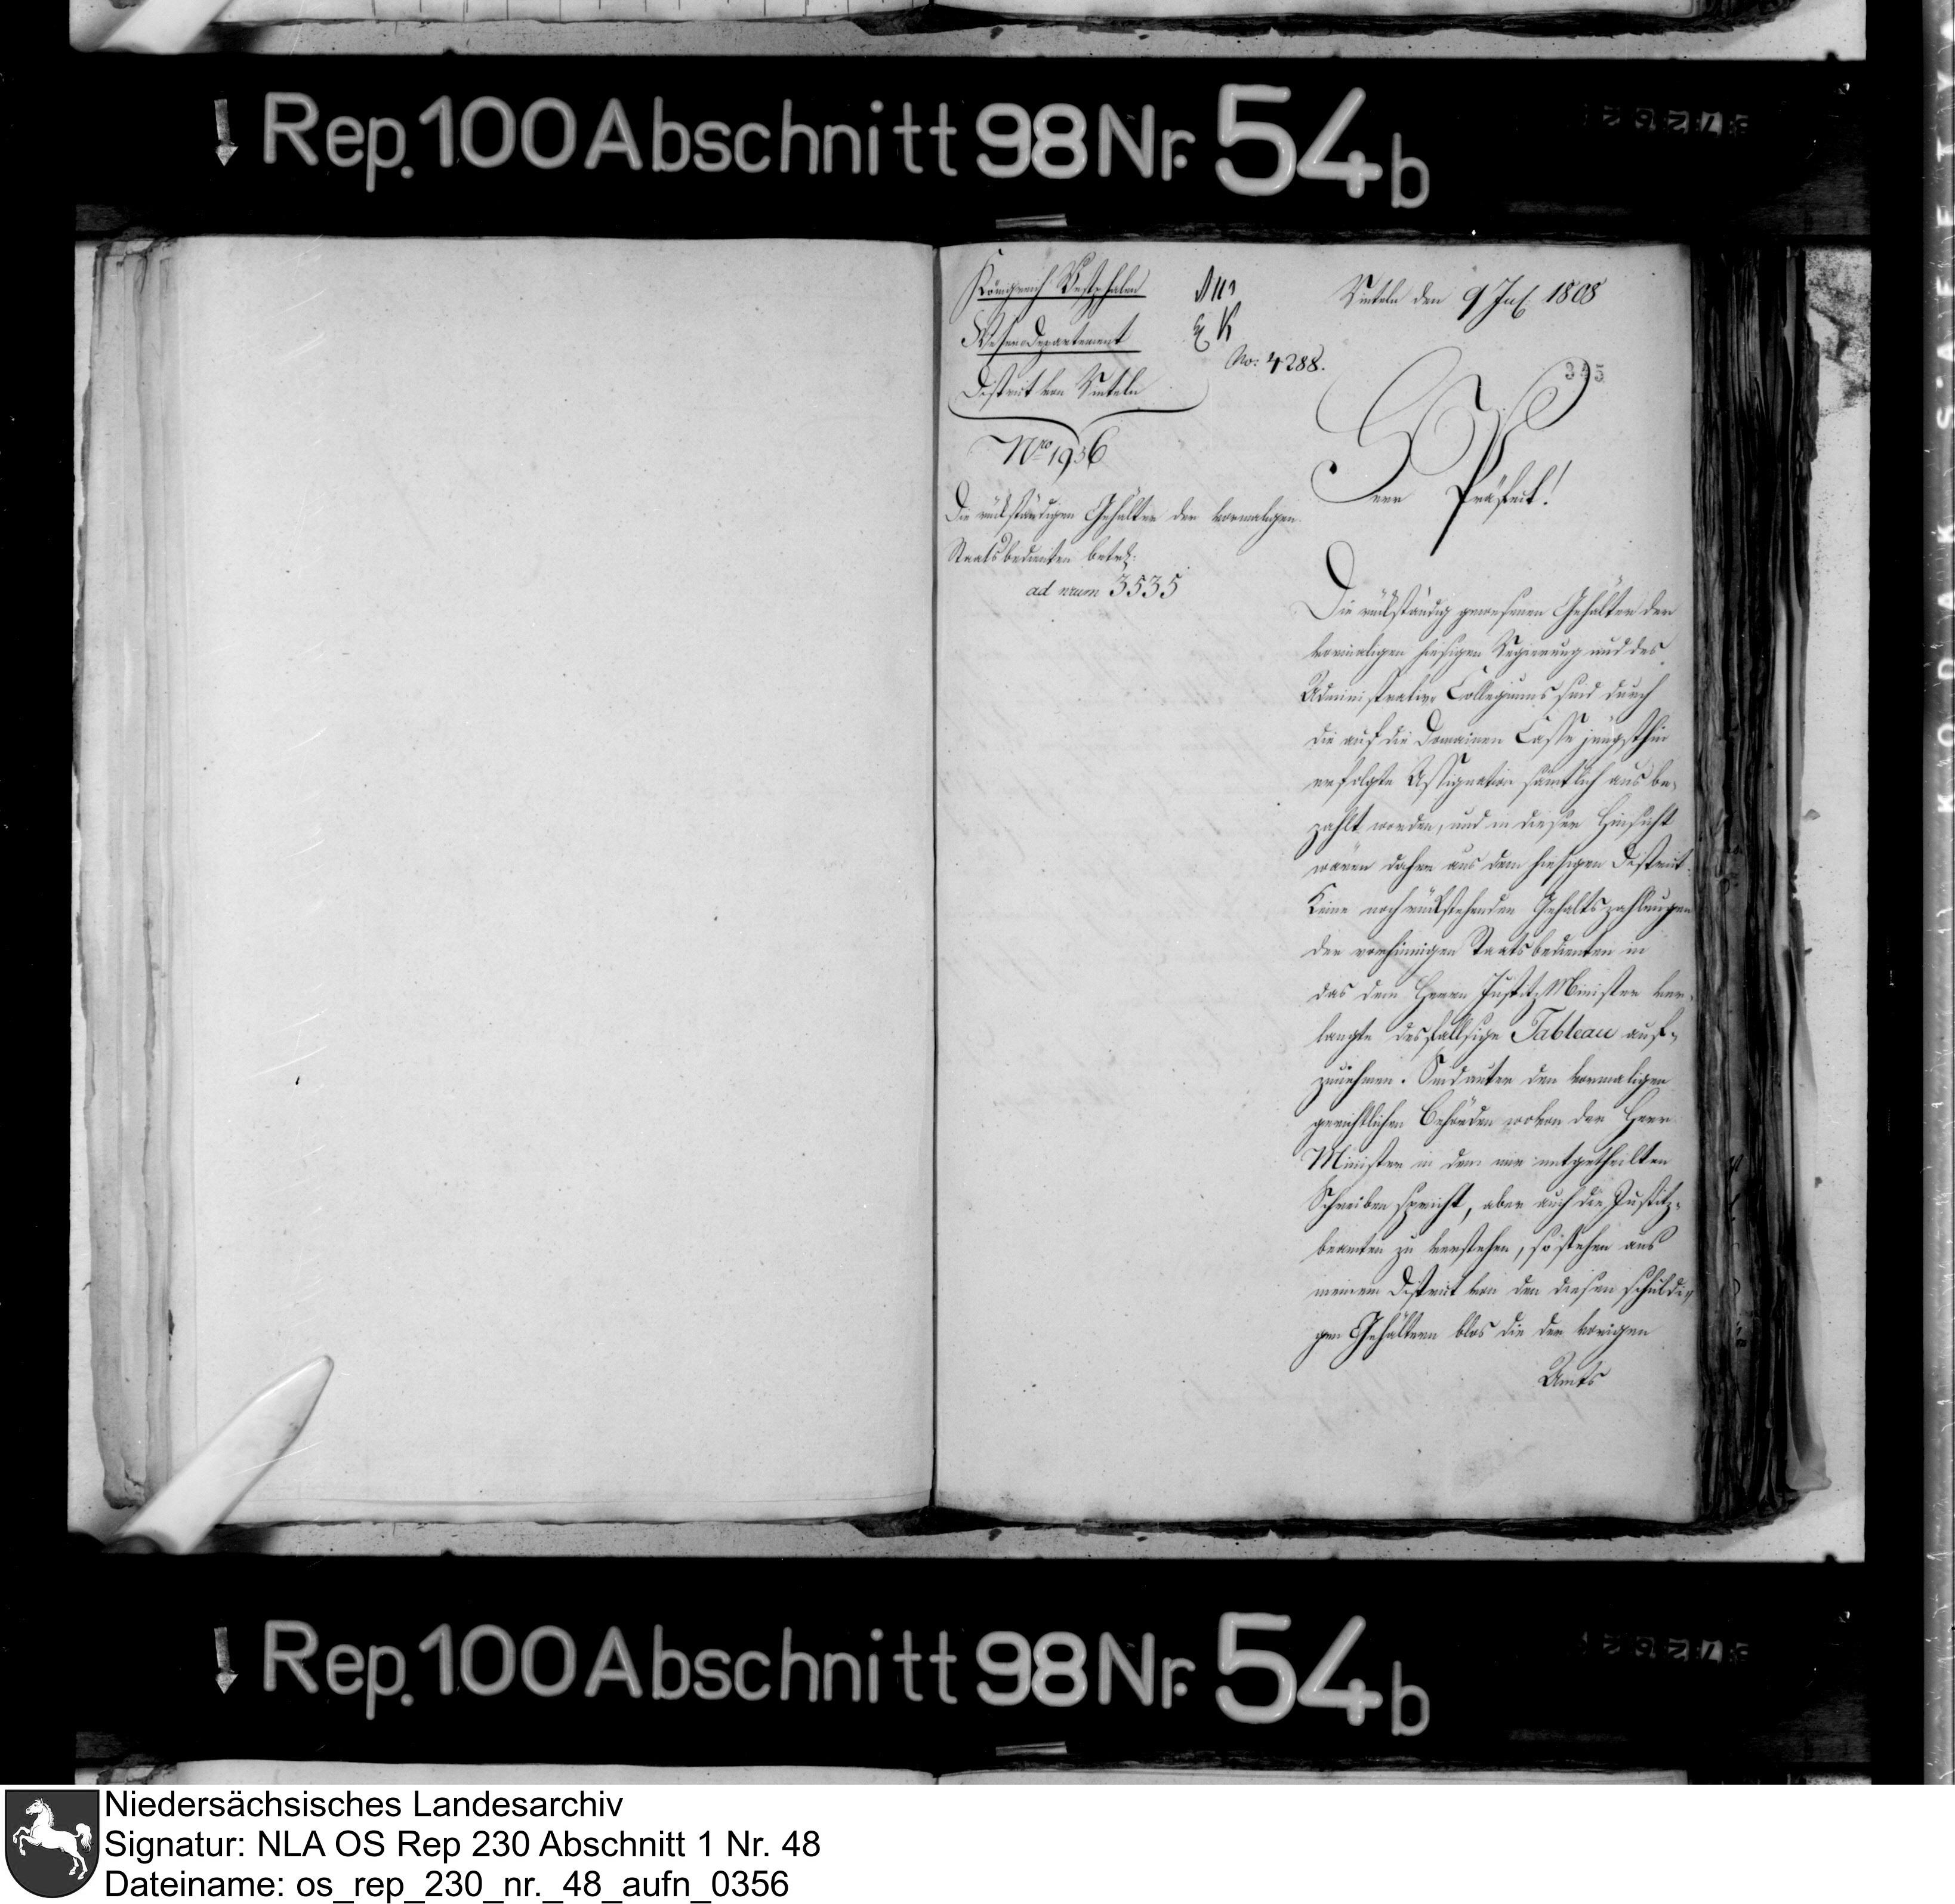 Rep. 100 Abschnitt 98 Nr. 54b
Königreich Westphalen
Weser Departement
District von Rinteln
No: 4288.
Nro 1956
Die rükständigen Gehälter der vormaligen
Staatsbedienten betr:
ad num 3535
Rinteln den 9 Jul. 1808
345
Herr Präfect!
Die rükständig gewesenen Gehälter der
vormaligen hiesigen Regierung und des
Administrativ Collegiums sind durch
die auf die Domainen Casse jüngsthin
erfolgte Assignation sämtlich aus be-
zahlt worden, und in dieser Hinsicht
wären daher aus dem hiesigen District
Keine noch rükstehenden Gehaltszahlungen
der vorhinnigen Staatsbedienten in
das dem Herrn Justitz Minister ver-
langte desfallsige Tableau auf-
zunehmen. Sind unter den vormaligen
gerichtlichen Behörden wovon der Herr
Minister in dem mir mitgetheilten
Schreiben spricht, aber auch die Justitz-
beamten zu verstehen, so stehen aus
meinem District von den diesen schuldi-
gen Gehältern blos die der vorigen
Amts
Rep. 100 Abschnitt 98 Nr. 54b
Niedersächsisches Landesarchiv
Signatur: NLA OS Rep 230 Abschnitt 1 Nr. 48
Dateiname: os_rep_230_nr._48_aufn_0356